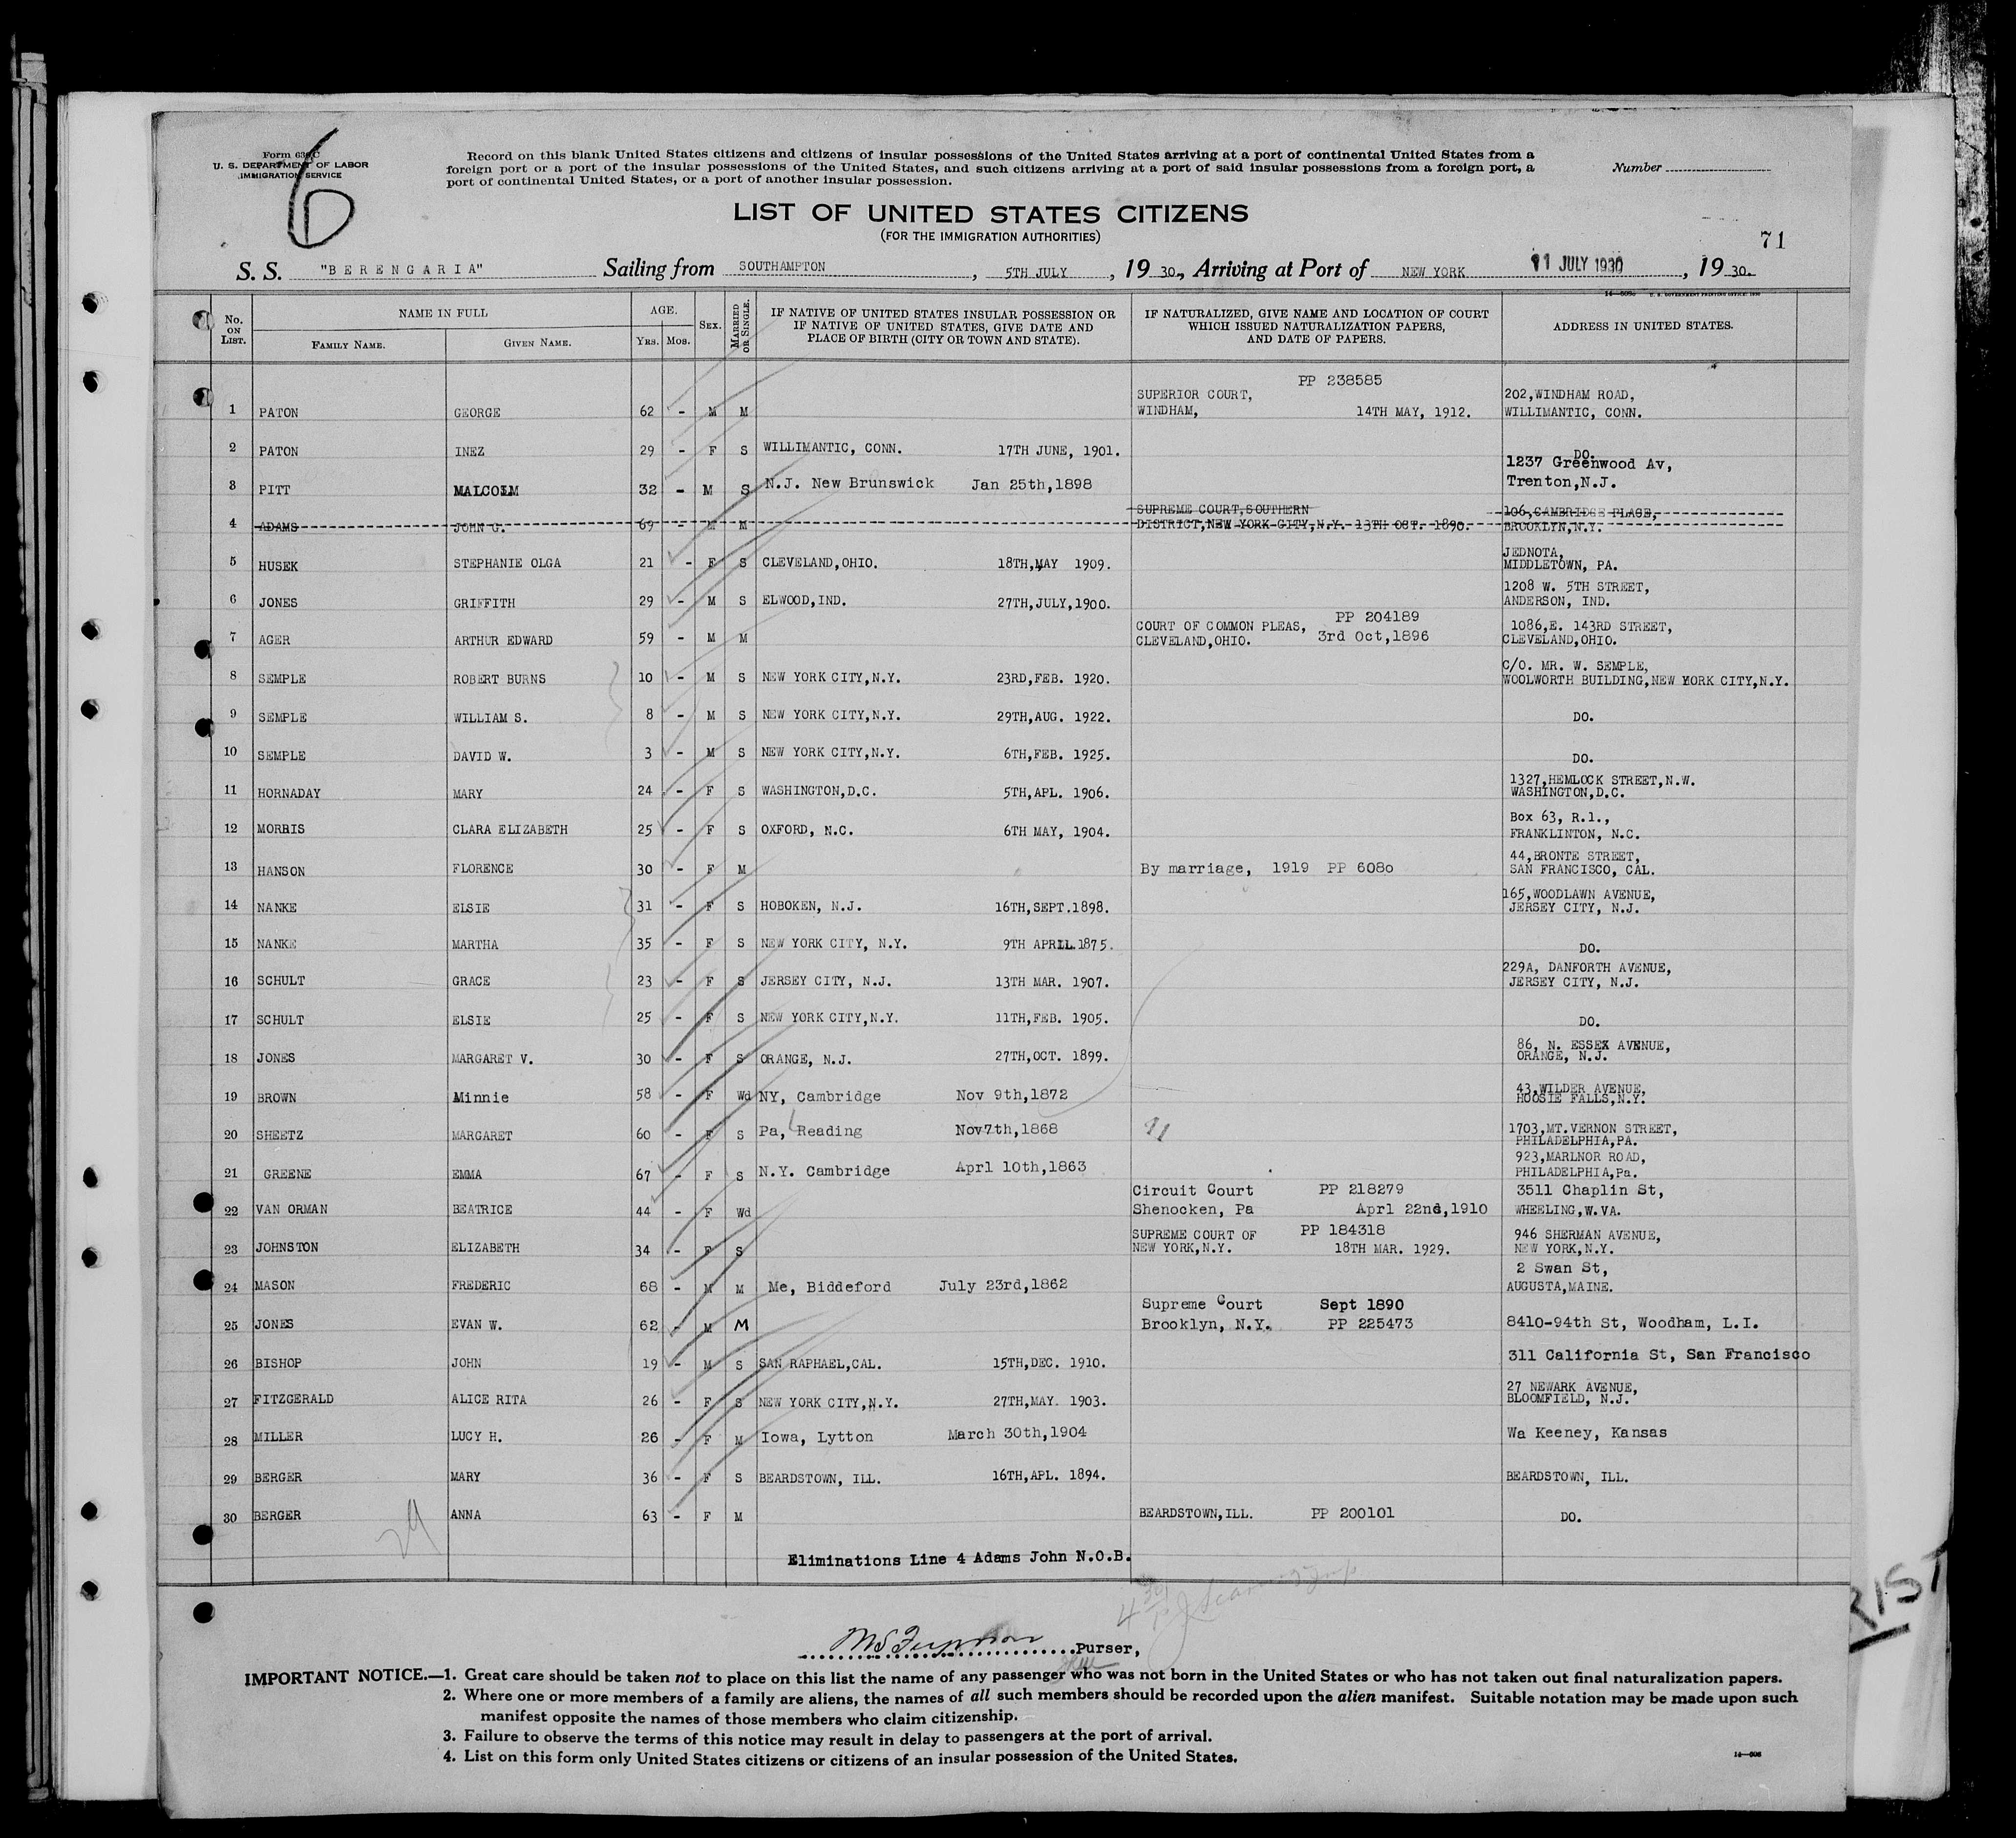 6
Form 630C
U. S. DEPARTMENT OF LABOR
IMMIGRATION SERVICE
Record on this blank United States citizens and citizens of insular possessions of the United States arriving at a port of continental United States from a
foreign port or a port of the insular possessions of the United States, and such citizens arriving at a port of said insular possessions from a foreign port, a
port of continental United States, or a port of another insular possession.
Number
LIST OF UNITED STATES CITIZENS
(FOR THE IMMIGRATION AUTHORITIES)
71
S. S. "BERENGARIA" Sailing from SOUTHAMPTON, 5TH JULY, 1930., Arriving at Port of NEW YORK 11 JULY 1930, 1930.
No. ON LIST. NAME IN FULL FAMILY NAME. GIVEN NAME. AGE. YRS. MOS. SEX. MARRIED OR SINGLE. IF NATIVE OF UNITED STATES INSULAR POSSESSION OR IF NATIVE OF UNITED STATES, GIVE DATE AND PLACE OF BIRTH (CITY OR TOWN AND STATE). IF NATURALIZED, GIVE NAME AND LOCATION OF COURT WHICH ISSUED NATURALIZATION PAPERS, AND DATE OF PAPERS. ADDRESS IN UNITED STATES.
1 PATON GEORGE 62 - M M SUPERIOR COURT, WINDHAM, PP 238585 14TH MAY, 1912. 202,WINDHAM ROAD, WILLIMANTIC, CONN.
2 PATON INEZ 29 - F S WILLIMANTIC, CONN. 17TH JUNE, 1901. DO.
3 PITT MALCOLM 32 - M S N.J. New Brunswick Jan 25th,1898 1237 Greenwood Av, Trenton,N.J.
4 ADAMS JOHN G. 69 - M M SUPREME COURT,SOUTHERN DISTRICT,NEW YORK CITY,N.Y. 13TH OCT. 1890. 106,CAMBRIDGE PLACE, BROOKLYN,N.Y.
5 HUSEK STEPHANIE OLGA 21 - F S CLEVELAND,OHIO. 18TH,MAY 1909. JEDNOTA, MIDDLETOWN, PA.
6 JONES GRIFFITH 29 - M S ELWOOD,IND. 27TH,JULY,1900. 1208 W. 5TH STREET, ANDERSON, IND.
7 AGER ARTHUR EDWARD 59 - M M COURT OF COMMON PLEAS, CLEVELAND,OHIO. PP 204189 3rd Oct,1896 1086,E. 143RD STREET, CLEVELAND,OHIO.
8 SEMPLE ROBERT BURNS 10 - M S NEW YORK CITY,N.Y. 23RD,FEB. 1920. C/O. MR. W. SEMPLE, WOOLWORTH BUILDING,NEW YORK CITY,N.Y.
9 SEMPLE WILLIAM S. 8 - M S NEW YORK CITY,N.Y. 29TH,AUG. 1922. DO.
10 SEMPLE DAVID W. 3 - M S NEW YORK CITY,N.Y. 6TH,FEB. 1925. DO.
11 HORNADAY MARY 24 - F S WASHINGTON,D.C. 5TH,APL. 1906. 1327,HEMLOCK STREET,N.W. WASHINGTON,D.C.
12 MORRIS CLARA ELIZABETH 25 - F S OXFORD, N.C. 6TH MAY, 1904. Box 63, R.1., FRANKLINTON, N.C.
13 HANSON FLORENCE 30 - F M By marriage, 1919 PP 6080 44,BRONTE STREET, SAN FRANCISCO, CAL.
14 NANKE ELSIE 31 - F S HOBOKEN, N.J. 16TH,SEPT.1898. 165,WOODLAWN AVENUE, JERSEY CITY, N.J.
15 NANKE MARTHA 35 - F S NEW YORK CITY, N.Y. 9TH APRIL 1875. DO.
16 SCHULT GRACE 23 - F S JERSEY CITY, N.J. 13TH MAR. 1907. 229A, DANFORTH AVENUE, JERSEY CITY, N.J.
17 SCHULT ELSIE 25 - F S NEW YORK CITY,N.Y. 11TH,FEB. 1905. DO.
18 JONES MARGARET V. 30 - F S ORANGE, N.J. 27TH,OCT. 1899. 86, N. ESSEX AVENUE, ORANGE, N.J.
19 BROWN Minnie 58 - F Wd NY, Cambridge Nov 9th,1872 43,WILDER AVENUE, HOOSIE FALLS,N.Y.
20 SHEETZ MARGARET 60 - F S Pa, Reading Nov7th,1868 1703,MT.VERNON STREET, PHILADELPHIA,PA.
21 GREENE EMMA 67 - F S N.Y. Cambridge Aprl 10th,1863 923,MARLNOR ROAD, PHILADELPHIA,Pa.
22 VAN ORMAN BEATRICE 44 - F Wd Circuit Court Shenocken, Pa PP 218279 Aprl 22nd,1910 3511 Chaplin St, WHEELING,W.VA.
23 JOHNSTON ELIZABETH 34 - F S SUPREME COURT OF NEW YORK,N.Y. PP 184318 18TH MAR. 1929. 946 SHERMAN AVENUE, NEW YORK,N.Y.
24 MASON FREDERIC 68 - M M Me, Biddeford July 23rd,1862 2 Swan St, AUGUSTA,MAINE.
25 JONES EVAN W. 62 - M M Supreme Court Brooklyn, N.Y. Sept 1890 PP 225473 8410-94th St, Woodham, L.I.
26 BISHOP JOHN 19 - M S SAN RAPHAEL,CAL. 15TH,DEC. 1910. 311 California St, San Francisco
27 FITZGERALD ALICE RITA 26 - F S NEW YORK CITY,N.Y. 27TH,MAY. 1903. 27 NEWARK AVENUE, BLOOMFIELD, N.J.
28 MILLER LUCY H. 26 - F M Iowa, Lytton March 30th,1904 Wa Keeney, Kansas
29 BERGER MARY 36 - F S BEARDSTOWN, ILL. 16TH,APL. 1894. BEARDSTOWN, ILL.
30 BERGER ANNA 63 - F M BEARDSTOWN,ILL. PP 200101 DO.
29
Eliminations Line 4 Adams John N.O.B.
Purser,
IMPORTANT NOTICE.—1. Great care should be taken not to place on this list the name of any passenger who was not born in the United States or who has not taken out final naturalization papers.
2. Where one or more members of a family are aliens, the names of all such members should be recorded upon the alien manifest. Suitable notation may be made upon such
manifest opposite the names of those members who claim citizenship.
3. Failure to observe the terms of this notice may result in delay to passengers at the port of arrival.
4. List on this form only United States citizens or citizens of an insular possession of the United States.